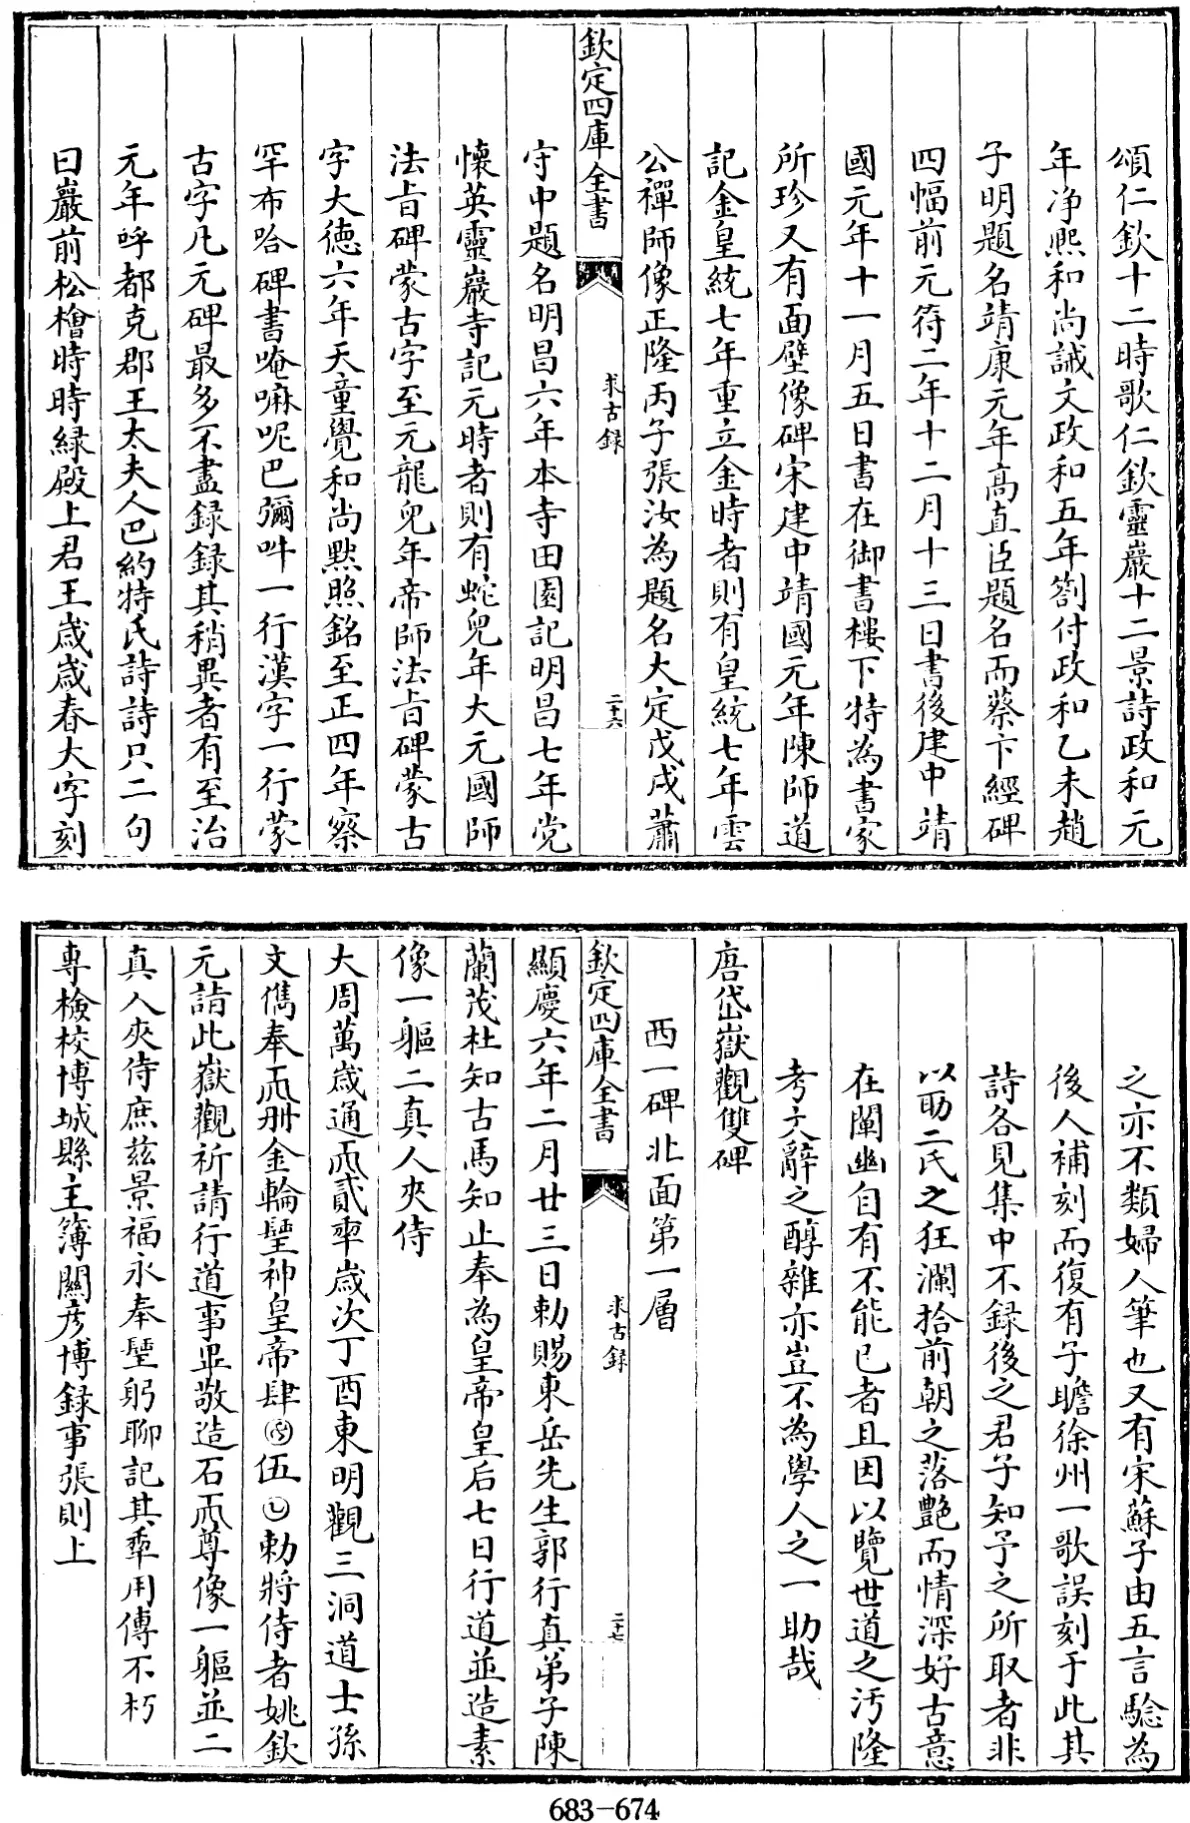 頌仁欽十二時歌仁欽靈巖十二景詩政和元
年净熈和尚誡文政和五年劄付政和乙未趙
子明題名靖康元年高直臣題名而蔡卞經碑
四幅前元符二年十二月十三日書後建中靖
國元年十一月五日書在御書樓下特為書家
所珍又有面壁像碑宋建中靖國元年陳師道
記金皇統七年重立金時者則有皇統七年雲
公禪師像正隆丙子張汝為題名大定戊戌蕭
欽定四庫全書
求古録
二十六
守中題名明昌六年本寺田園記明昌七年党
懷英靈巖寺記元時者則有蛇兒年大元國師
法㫖碑蒙古字至元龍兒年帝師法㫖碑蒙古
字大徳六年天童覺和尚黙照銘至正四年察
罕布哈碑書唵嘛呢巴彌吽一行漢字一行蒙
古字凡元碑最多不盡録録其稍異者有至治
元年呼都克郡王太夫人巴約特氏詩詩只二句
曰巖前松檜時時緑殿上君王歲歲春大字刻
之亦不類婦人筆也又有宋蘇子由五言騐為
後人補刻而復有子瞻徐州一歌誤刻于此其
詩各見集中不録後之君子知予之所取者非
以助二氏之狂瀾拾前朝之落艷而情深好古意
在闡幽自有不能已者且因以覽世道之汚隆
考文辭之醇雜亦豈不為學人之一助哉
唐岱嶽觀雙碑
西一碑北面第一層
欽定四庫全書
求古録
二十七
顯慶六年二月廿三日勅賜東岳先生郭行真弟子陳
蘭茂杜知古馬知止奉為皇帝皇后七日行道並造素
像一軀二真人夾侍
大周萬歲通𠀑貳𠡦歲次丁酉東明觀三洞道士孫
文儁奉𠀑册金輪𨲢神皇帝肆囝伍𡆠勅將侍者姚欽
元詣此嶽觀祈請行道事畢敬造石𠀑尊像一軀並二
真人夾侍庶兹景福永奉𨲢躬聊記其𠡦用傳不朽
專檢校博城縣主簿關彦博録事張則上
683-674